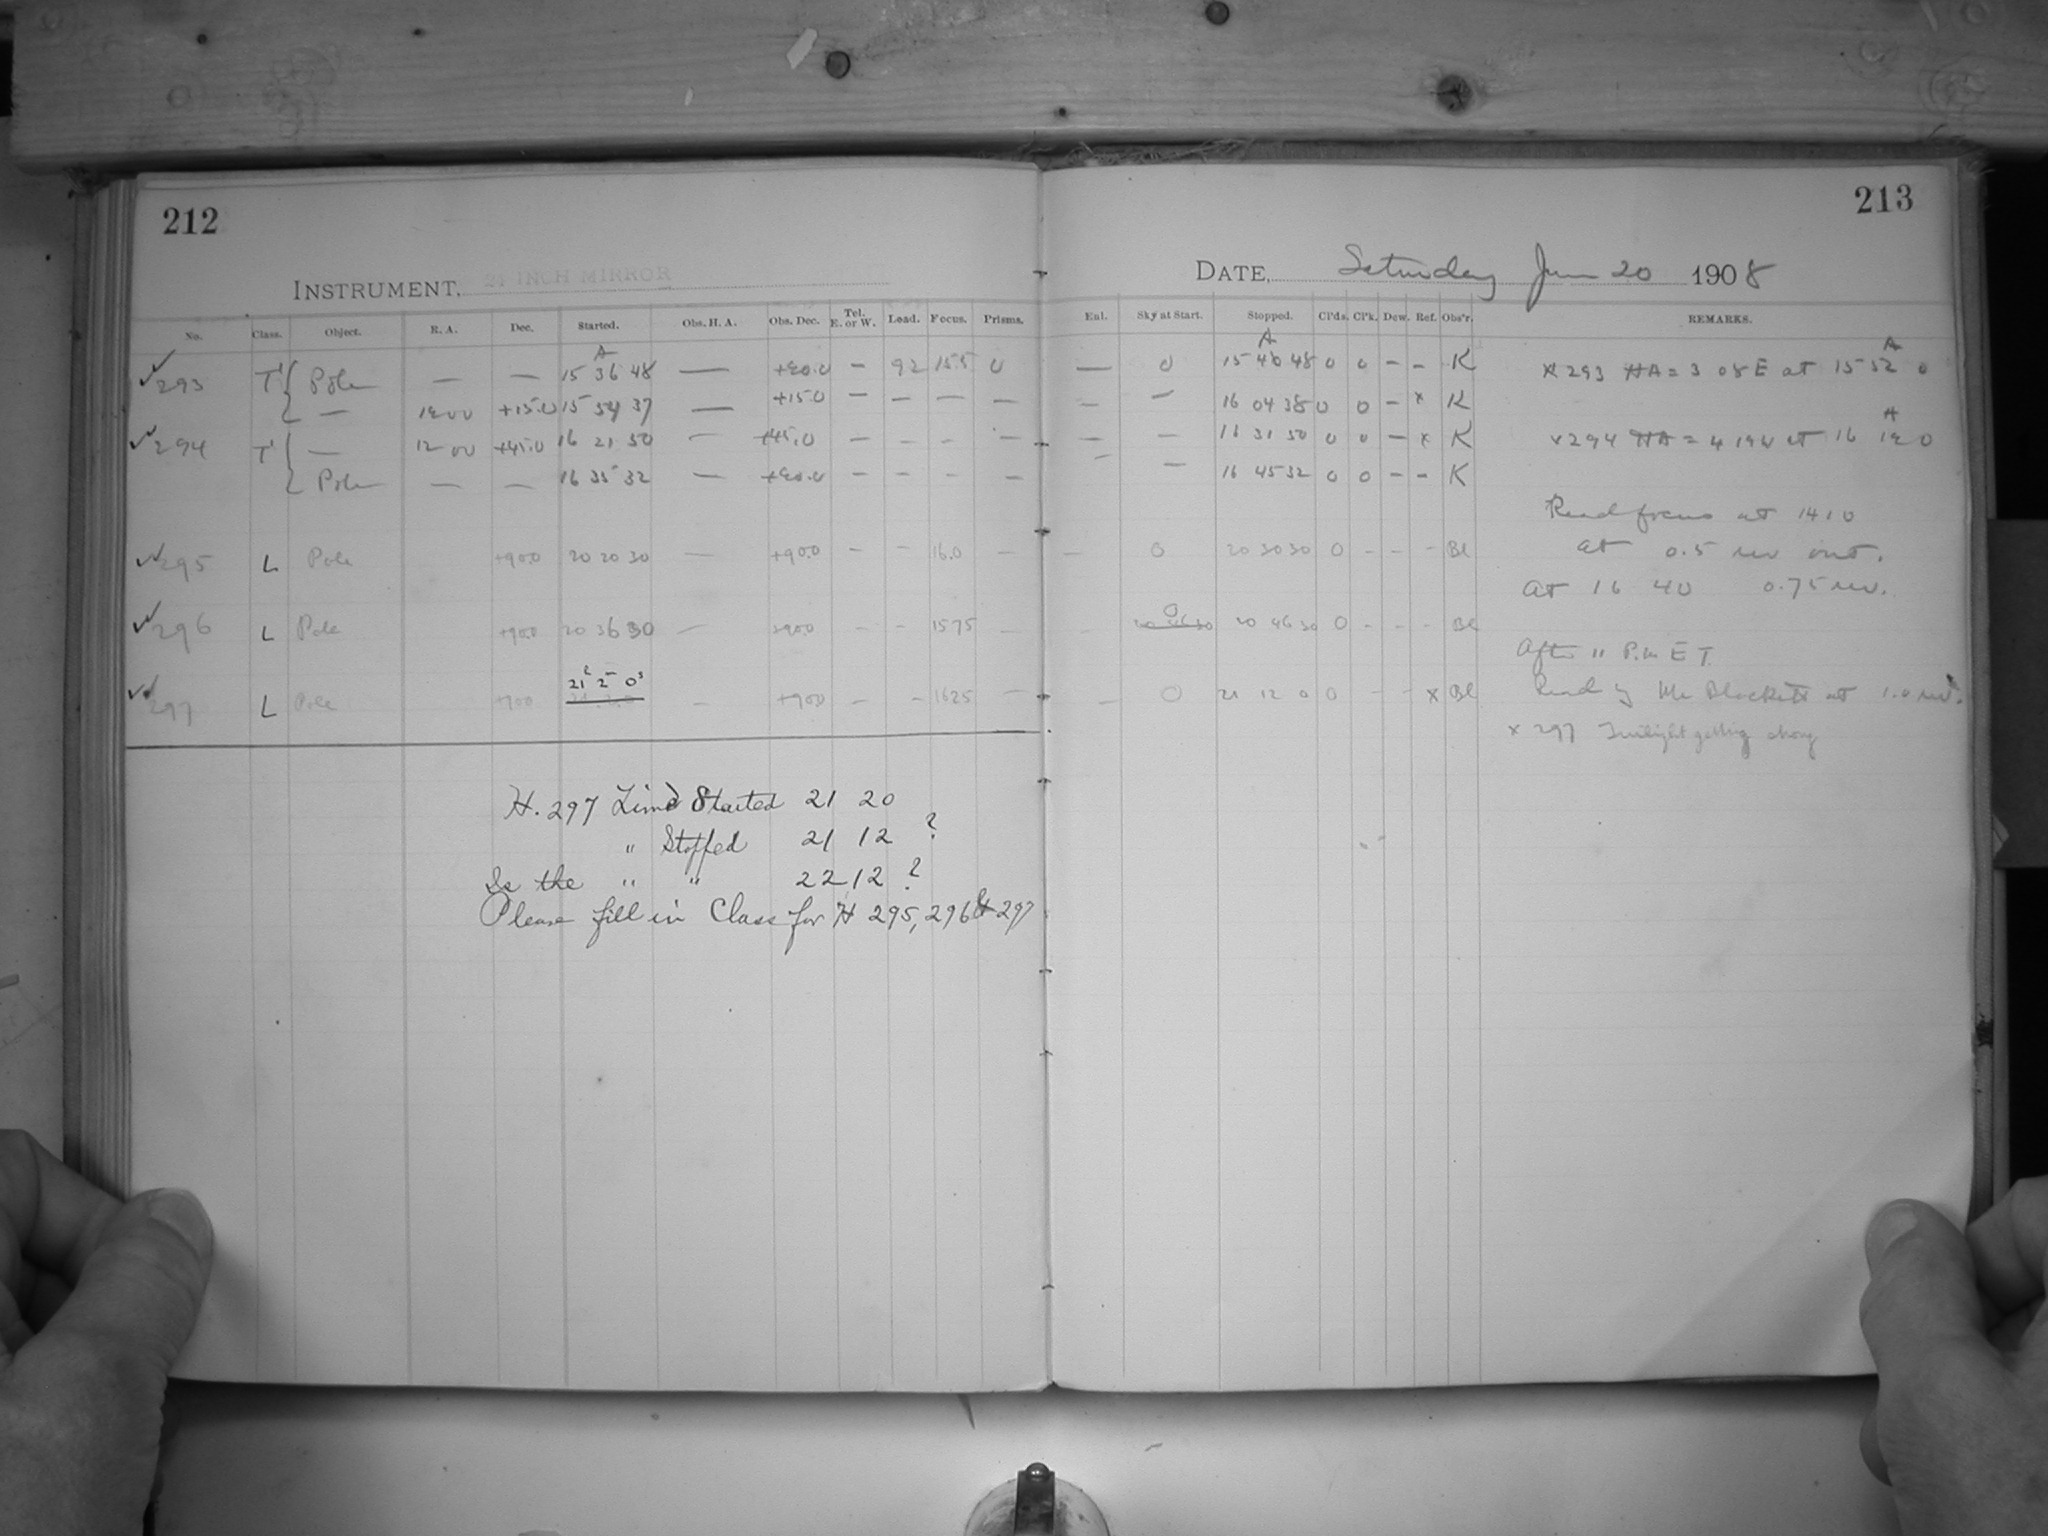 212
INSTRUMENT, 21 INCH MIRROR
No. Class. Object. R. A. Dec. Started. Obs. H. A. Obs. Dec. Tel. E. or W. Load. Focus. Prisms.
✓ 293 T' { Pole — — 15 36 48 A — +90.0 — 92 15.5 0
— 18 00 +15.0 15 54 37 — +15.0 — — — —
✓ 294 T' { — 12 00 +45.0 16 21 50 — +45.0 — — — —
Pole — — 16 35 32 — +90.0 — — — —
✓ 295 L Pole +90.0 20 20 30 — +90.0 — — 16.0 —
✓ 296 L Pole +90.0 20 36 30 — +90.0 — — 15 75 —
✓ 297 L Pole +90.0 21 2 0 — +90.0 — — 16 25 —
H. 297 Time Started 21 20
" Stopped 21 12 ?
Is the " " 22 12 ?
Please fill in Class for H 295, 296 & 297
213
DATE, Saturday June 20 1908
Enl. Sky at Start. Stopped. Cl'ds. Cl'k. Dew. Ref. Obs'r. REMARKS.
— 0 15 46 48 A 0 0 — — K x 293 HA = 3 08 E at 15 52 0 A
— — 16 04 38 0 0 — x K
— — 16 31 50 0 0 — x K x 294 HA = 4 19 W at 16 18 0 A
— — 16 45 32 0 0 — — K
Read focus at 14 10
— 0 20 30 30 0 - - - Bl at 0.5 rev out.
At 16 40 0.75 rev.
— 0 20 46 30 20 46 30 0 - - - Bl
After 11 P.M. E T.
— 0 21 12 0 0 - - x Bl Read by Mr Blackett at 1.0 rev.
x 297 Twilight getting strong